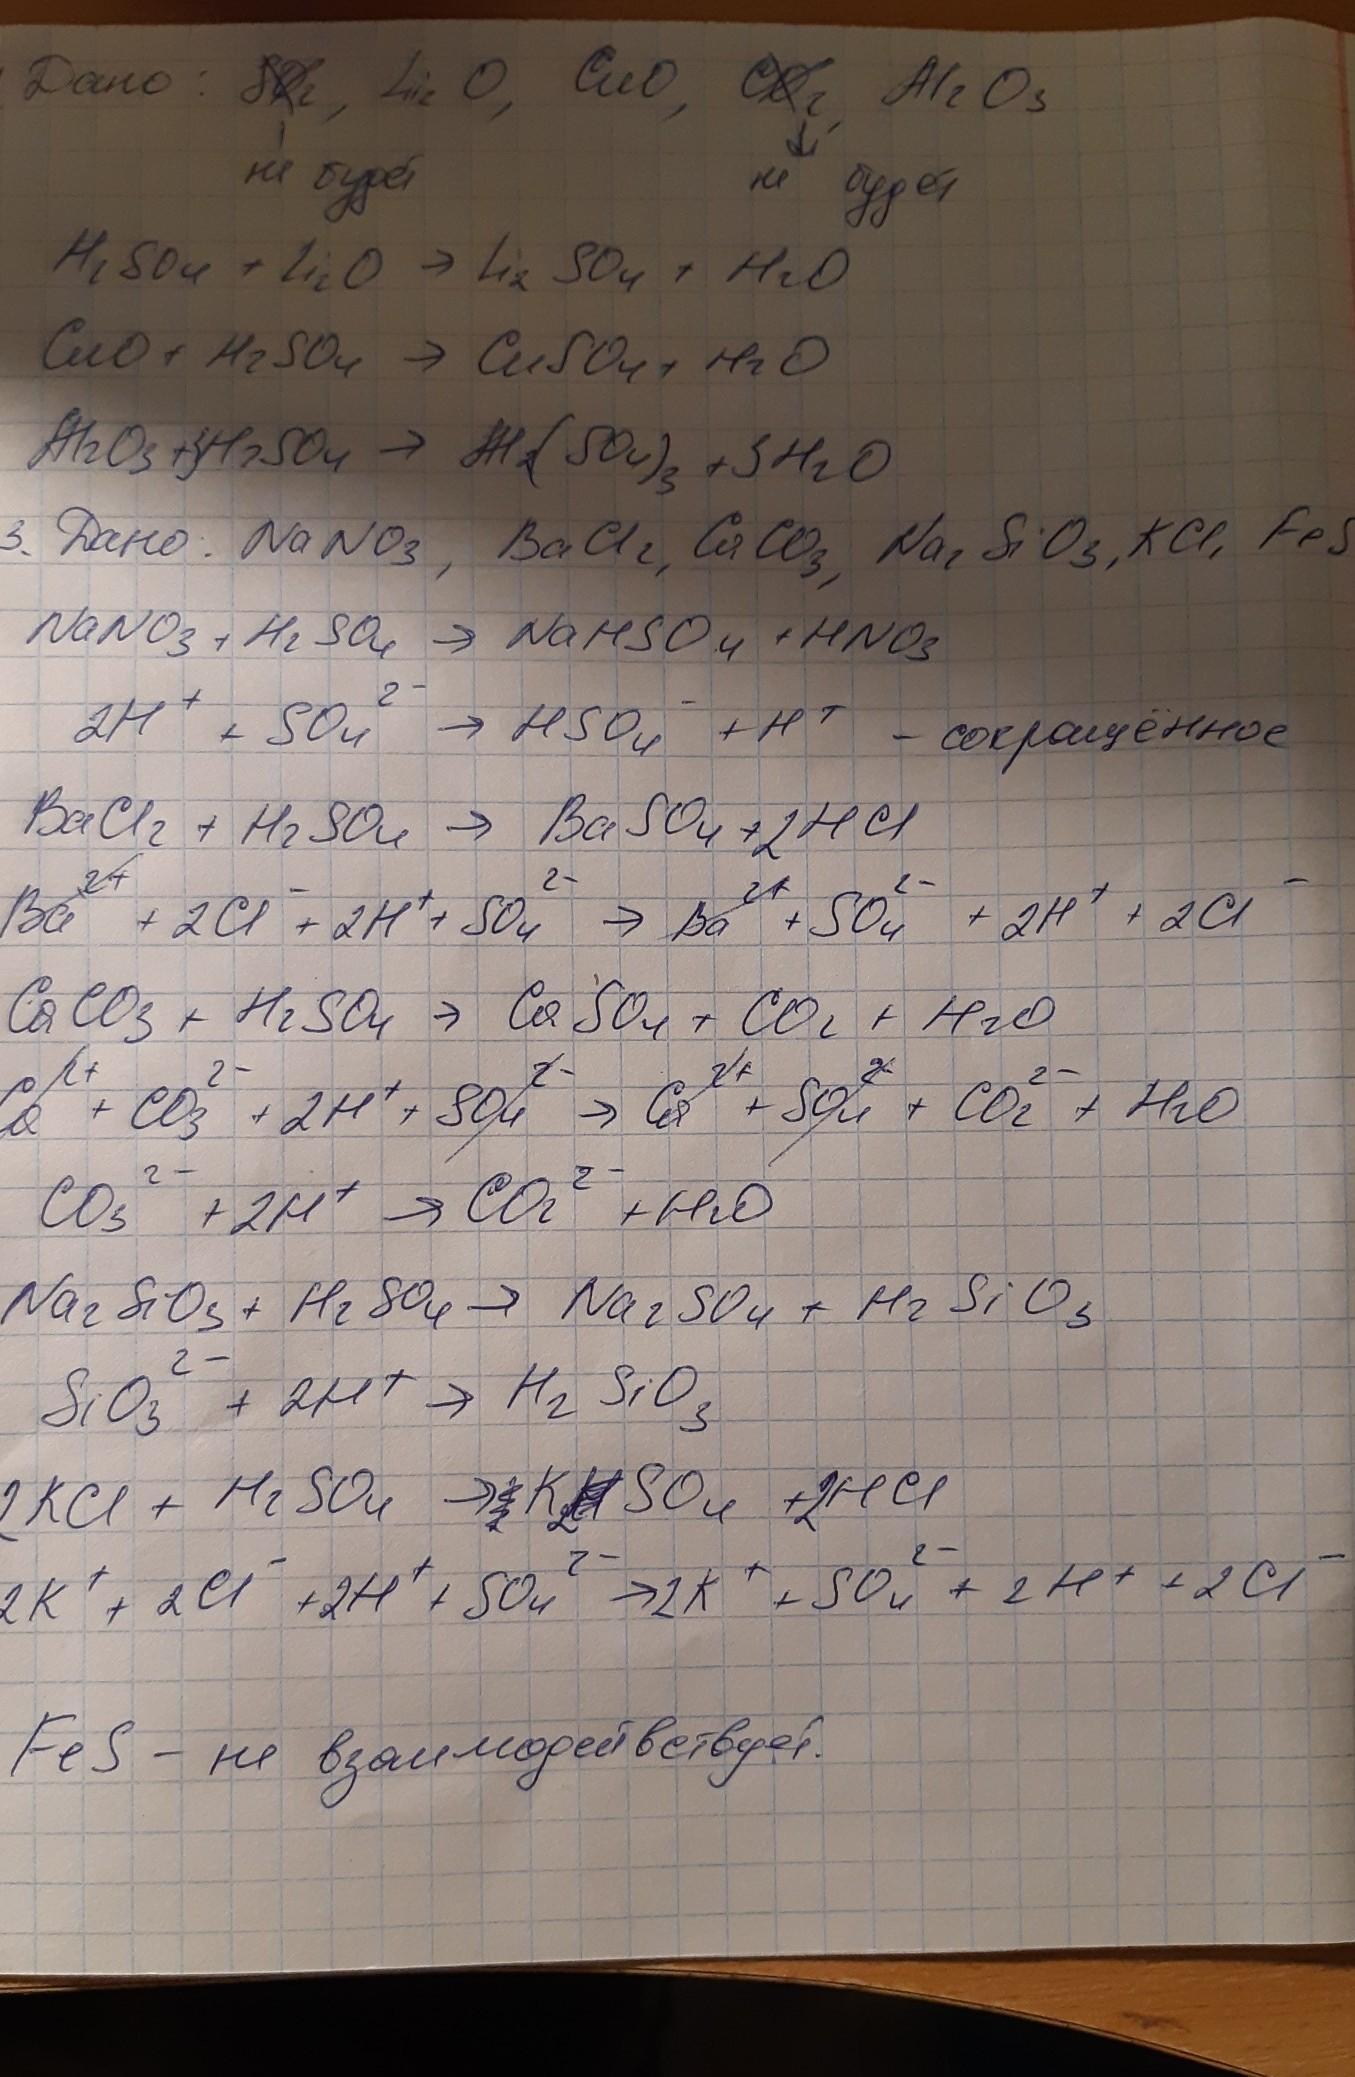 Дано: SO₂, Li₂O, CuO, CO₂, Al₂O₃
не будет не будет
H₂SO₄ + Li₂O → Li₂SO₄ + H₂O
CuO + H₂SO₄ → CuSO₄ + H₂O
Al₂O₃ + 3H₂SO₄ → Al₂(SO₄)₃ + 3H₂O
3. Дано: NaNO₃, BaCl₂, CaCO₃, Na₂SiO₃, KCl, FeS
NaNO₃ + H₂SO₄ → NaHSO₄ + HNO₃
2H⁺ + SO₄²⁻ → HSO₄⁻ + H⁺ – сокращённое
BaCl₂ + H₂SO₄ → BaSO₄ + 2HCl
Ba²⁺ + 2Cl⁻ + 2H⁺ + SO₄²⁻ → Ba²⁺ + SO₄²⁻ + 2H⁺ + 2Cl⁻
CaCO₃ + H₂SO₄ → CaSO₄ + CO₂ + H₂O
Ca²⁺ + CO₃²⁻ + 2H⁺ + SO₄²⁻ → Ca²⁺ + SO₄²⁻ + CO₂²⁻ + H₂O
CO₃²⁻ + 2H⁺ → CO₂²⁻ + H₂O
Na₂SiO₃ + H₂SO₄ → Na₂SO₄ + H₂SiO₃
SiO₃²⁻ + 2H⁺ → H₂SiO₃
2KCl + H₂SO₄ → K₂SO₄ + 2HCl
2K⁺ + 2Cl⁻ + 2H⁺ + SO₄²⁻ → 2K⁺ + SO₄²⁻ + 2H⁺ + 2Cl⁻
FeS – не взаимодействует.